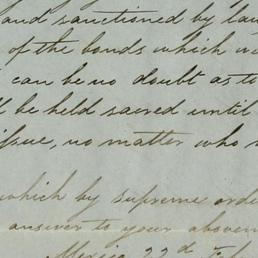 and sanctioned by law
of the bonds which w
can be no doubt as to
be held sacred until
issue, no matter who
which by supreme orde
answer to your abovem
Mexico 22d Feb